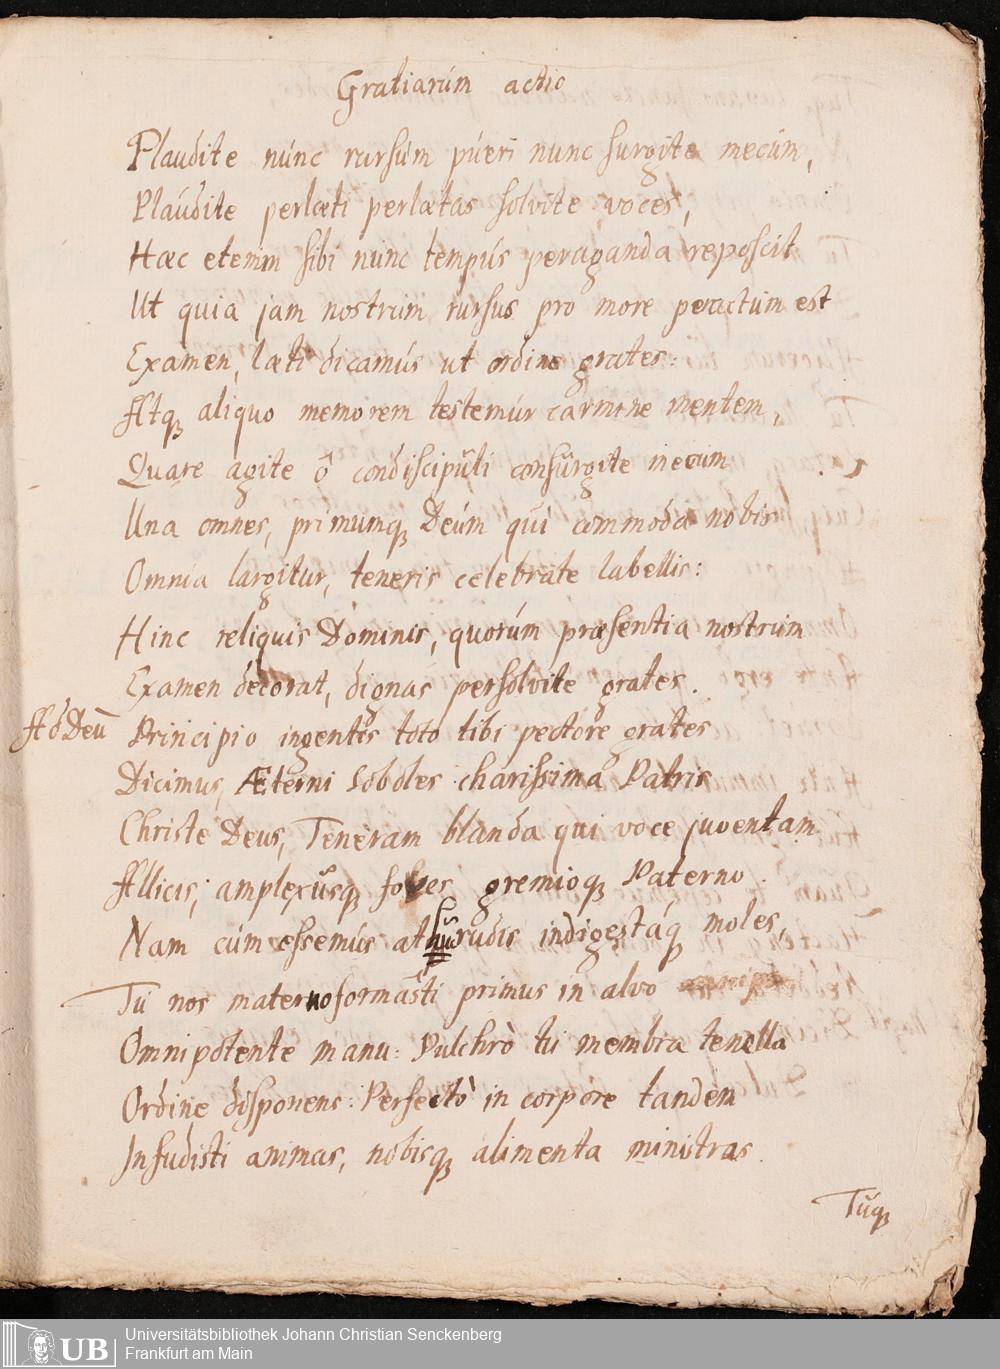 Gratiarúm actio
Plaudite núnc rursúm púeri nunc surgite mecúm,
Plaúdite perlæti perlætas solvite voces,
Hæc etenim sibi nunc tempús peraganda reposcit
Ut quia jam nostrum rursus pro more peractum est
Examen, læti dicamús ut ordine grates:
Atq́ aliquo memorem testemúr carmine mentem,
Quare agite ô condiscipŭli consŭrgite mecum
Una omnes, primumq́ Deúm qui commoda nobis
Omnia largitur, teneris celebrate labellis:
Hinc reliquis Dominis, quorúm præsentia nostrum
Examen decorat, dignas persolvite grates.
Ad Deū Principio ingentes toto tibi pectore grates
Dicimus, Æterni soboles charissima Patris
Christe Deus, Teneram blanda qui voce juventam
Allicis, amplexŭsq́ foves gremioq́ Paterno.
Nam cúm essemús rudis indigestáq́ moles,
Tú nos materno formasti primus in alvo
Omnipotente manu: Pulchrò tu membra tenella
Ordine disponens: Perfectò in corpore tandem
Infudisti animas, nobisq́ alimenta ministras.
Tŭq́
UB
Universitätsbibliothek Johann Christian Senckenberg
Frankfurt am Main